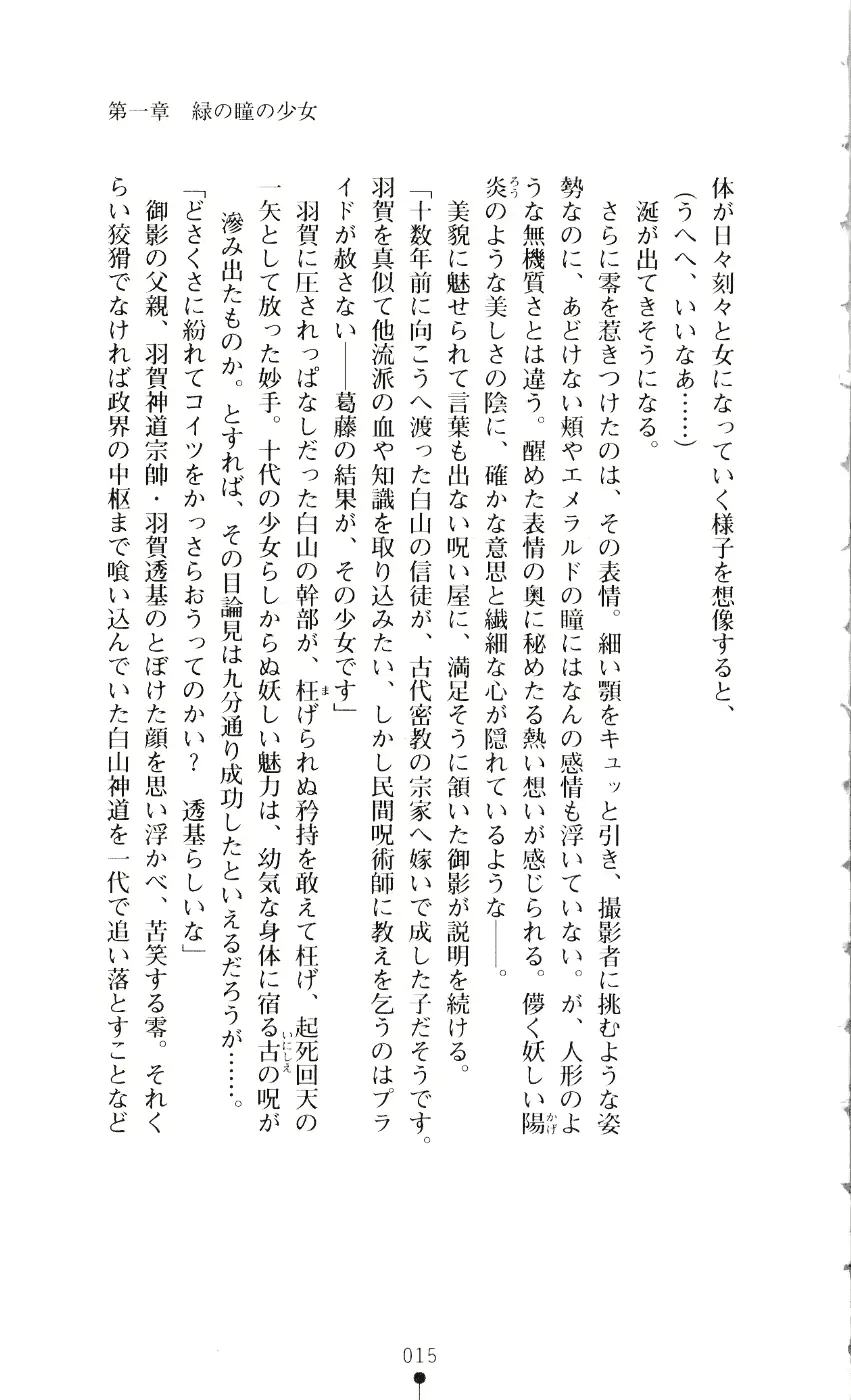 第一章　緑の瞳の少女
体が日々刻々と女になっていく様子を想像すると、
(うへへ、いいなあ……)
涎が出てきそうになる。
さらに零を惹きつけたのは、その表情。細い顎をキュッと引き、撮影者に挑むような姿
勢なのに、あどけない頬やエメラルドの瞳にはなんの感情も浮いていない。が、人形のよ
うな無機質さとは違う。醒めた表情の奥に秘めたる熱い想いが感じられる。儚く妖しい陽
炎のような美しさの陰に、確かな意思と繊細な心が隠れているような――。
美貌に魅せられて言葉も出ない呪い屋に、満足そうに頷いた御影が説明を続ける。
「十数年前に向こうへ渡った白山の信徒が、古代密教の宗家へ嫁いで成した子だそうです。
羽賀を真似て他流派の血や知識を取り込みたい、しかし民間呪術師に教えを乞うのはプラ
イドが赦さない――葛藤の結果が、その少女です」
羽賀に圧されっぱなしだった白山の幹部が、枉げられぬ矜持を敢えて枉げ、起死回天の
一矢として放った妙手。十代の少女らしからぬ妖しい魅力は、幼気な身体に宿る古の呪が
滲み出たものか。とすれば、その目論見は九分通り成功したといえるだろうが……。
「どさくさに紛れてコイツをかっさらおうってのかい？　透基らしいな」
御影の父親、羽賀神道宗師・羽賀透基のとぼけた顔を思い浮かべ、苦笑する零。それく
らい狡猾でなければ政界の中枢まで喰い込んでいた白山神道を一代で追い落とすことなど
015